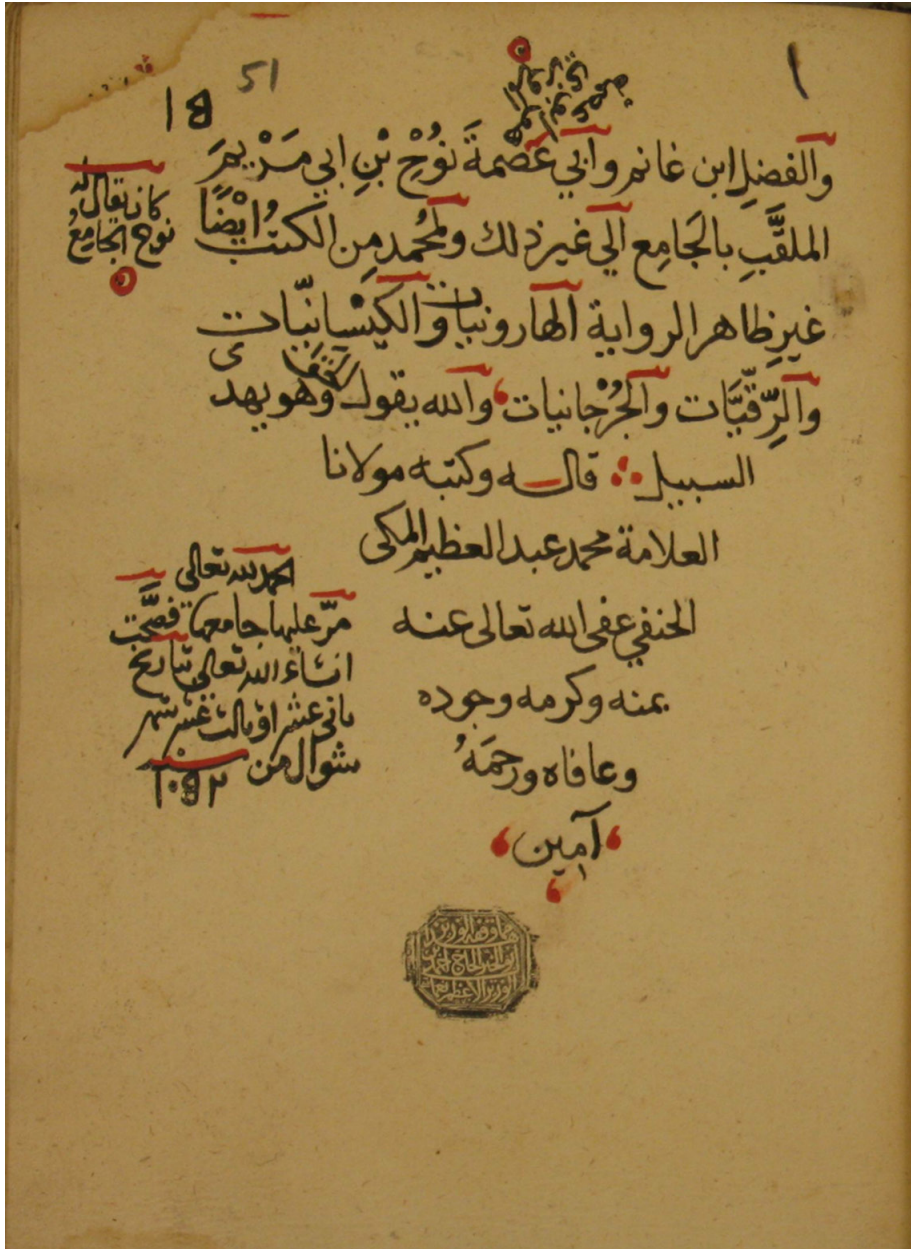 ١
51
١٥
والفضلِ ابن غانم وأبي عصْمةَ نوُحْ بْنِ ابي مَرْيمَ
الملقَّبِ بالجَامِع الي غير ذلك ولمُحمد مِن الكتبُ ايْضًا
غيرِ ظاهر الرواية الهارونيات والكيْسانيّات
والرِّقيَّات والجرُجْانيات والله يقول الحق وهو يهدى
السبيل قاله وكتبه مولانا
العلامة محمد عبد العظيم المكى
الحنفي عفى الله تعالى عنه
بمنه وكرمه وجوده
وعافاه ورحمَهُ
آمين
كان يقال له
نوح الجامعُ
الحمد لله تعالى
مرّ عليها جامعها فصحَّت
انشاء الله تعالى بتاريخ
ثانى عشر او ثالث عشر شهر
شوال من سنة
١٠٩٢